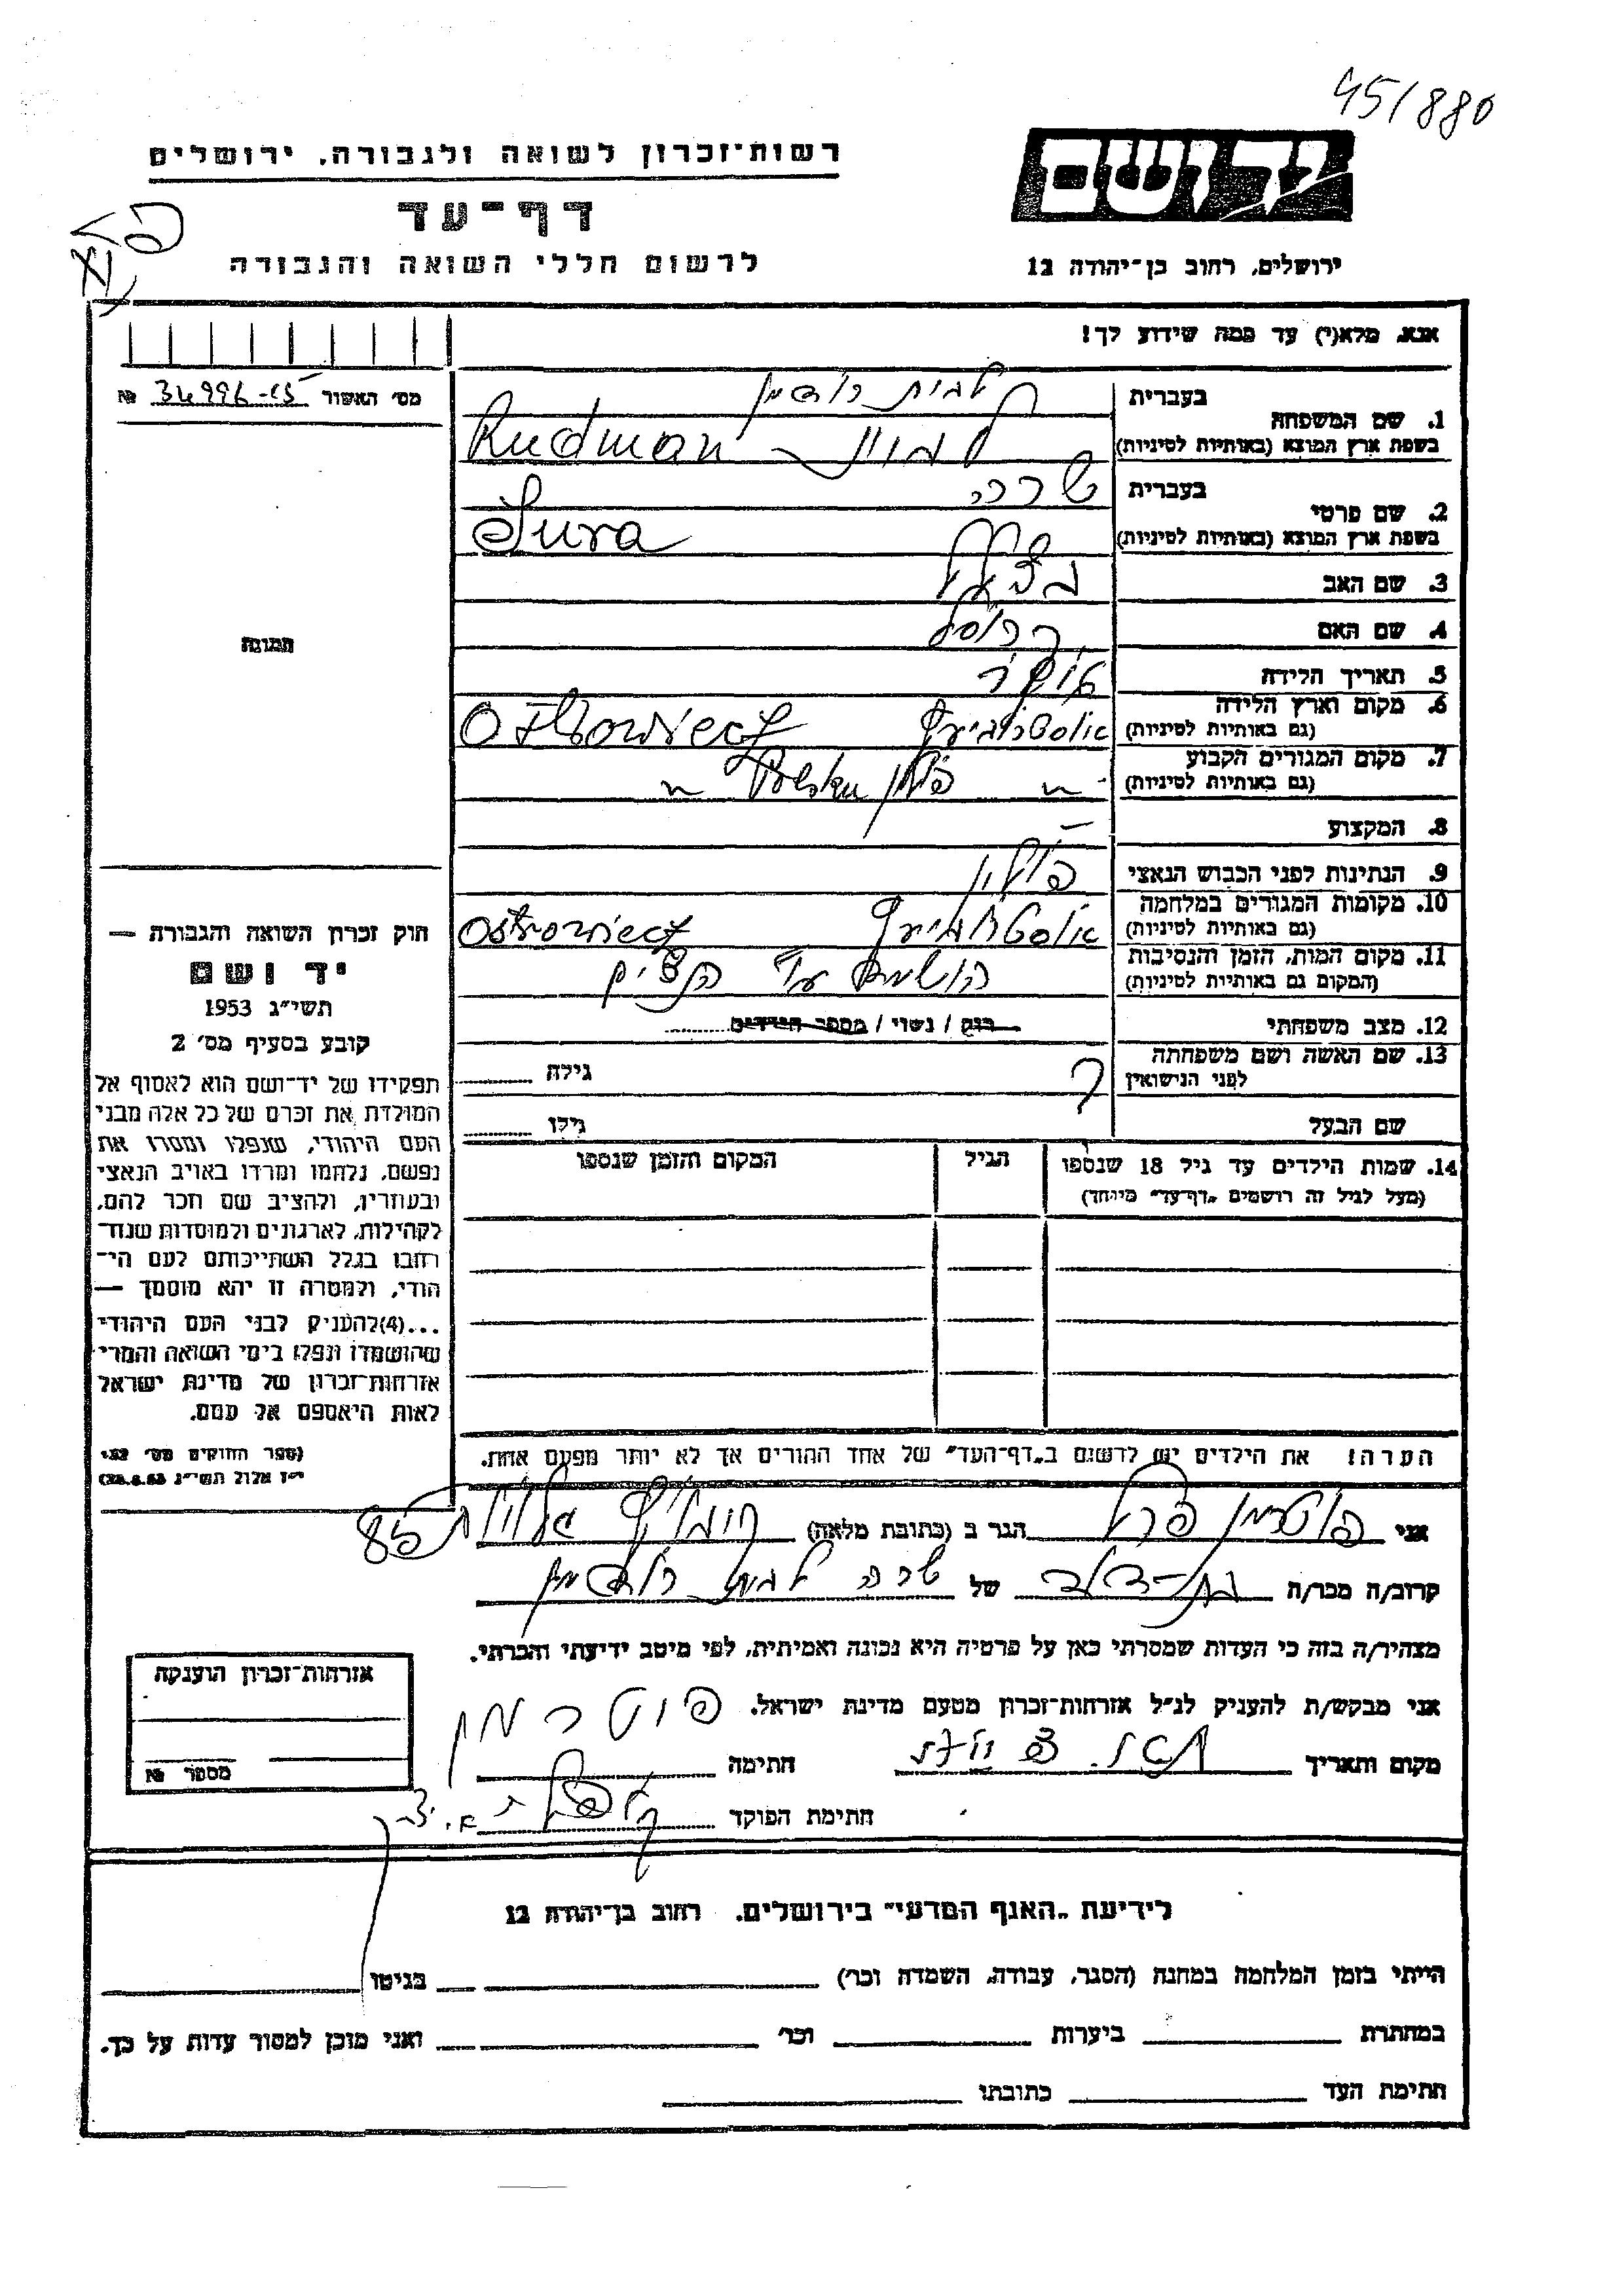 45/880
יד ושם
רשות־זכרון לשואה ולגבורה, ירושלים
דף־עד
לרשום חללי השואה והגבורה
ירושלים, רחוב בן־יהודה 12
אנא, מלא(י) עד כמה שידוע לך!
מס׳ האשור № 34996-45
1. שם המשפחה
בעברית
רודמן
בשפת ארץ המוצא (באותיות לטיניות)
Rudman
2. שם פרטי
בעברית
שרה
בשפת ארץ המוצא (באותיות לטיניות)
Sura
3. שם האב
4. שם האם
5. תאריך הלידה
6. מקום וארץ הלידה
(גם באותיות לטיניות)
7. מקום המגורים הקבוע
(גם באותיות לטיניות)
״ פולין Polska ״
8. המקצוע
—
9. הנתינות לפני הכבוש הנאצי
פולין
10. מקומות המגורים במלחמה
(גם באותיות לטיניות)
Ostrowiec
11. מקום המות, הזמן והנסיבות
(המקום גם באותיות לטיניות)
הושמדה ע״י הנצים
12. מצב משפחתי
רוק / נשוי / מספר הילדים
13. שם האשה ושם משפחתה
לפני הנישואין
?
גילה
שם הבעל
גילו
14. שמות הילדים עד גיל 18 שנספו
(מעל לגיל זה רושמים „דף־עד״ מיוחד)
הגיל
המקום והזמן שנספו
הערה! את הילדים יש לרשום ב„דף־העד״ של אחד ההורים אך לא יותר מפעם אחת.
תמונה
חוק זכרון השואה והגבורה —
יד ושם
תשי״ג 1953
קובע בסעיף מס׳ 2
תפקידו של יד־ושם הוא לאסוף אל
המולדת את זכרם של כל אלה מבני
העם היהודי, שנפלו ומסרו את
נפשם, נלחמו ומרדו באויב הנאצי
ובעוזריו, ולהציב שם וזכר להם,
לקהילות, לארגונים ולמוסדות שנח־
רחבו בגלל השתייכותם לעם הי־
הודי, ולמטרה זו יהא מוסמך —
...(4) להעניק לבני העם היהודי
שהושמדו ונפלו בימי השואה והמרי
אזרחות־זכרון של מדינת ישראל
לאות היאספם אל עמם.
(ספר החוקים מס׳ 132,
י״ז אלול תשי״ג 28.8.53)
אני פוטרמן פרל הגר ב (כתובת מלאה) 85
קרוב/ה מכר/ה בת-דוד של שרה רודמן
מצהיר/ה בזה כי העדות שמסרתי כאן על פרטיה היא נכונה ואמיתית, לפי מיטב ידיעתי והכרתי.
אני מבקש/ת להעניק לנ״ל אזרחות־זכרון מטעם מדינת ישראל.
מקום ותאריך
חתימה פוטרמן
חתימת הפוקד
אזרחות־זכרון הוענקה
מספר №
לידיעת „האגף המדעי״ בירושלים, רחוב בן־יהודה 12
הייתי בזמן המלחמה במחנה (הסגר, עבודה, השמדה וכו׳) בגיטו
במחתרת ביערות וכו׳ ואני מוכן למסור עדות על כך.
חתימת העד כתובתו